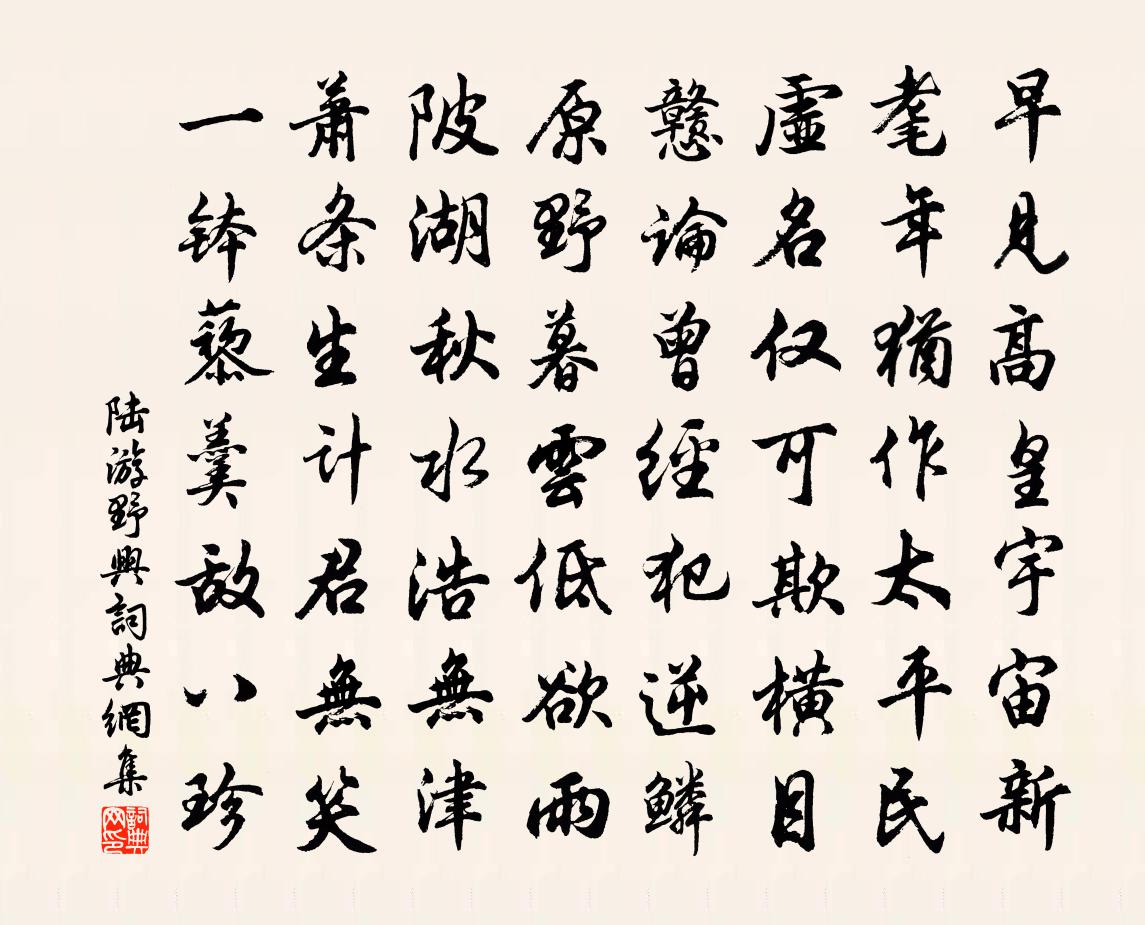 早見高皇宇宙新
耄年猶作太平民
虛名仅可欺橫目
戆論曾經犯逆鱗
原野暮雲低欲雨
陂湖秋水浩無津
蕭条生计君無笑
一钵藜羹敌八珍
陆游野興詞典網集
詞典网印